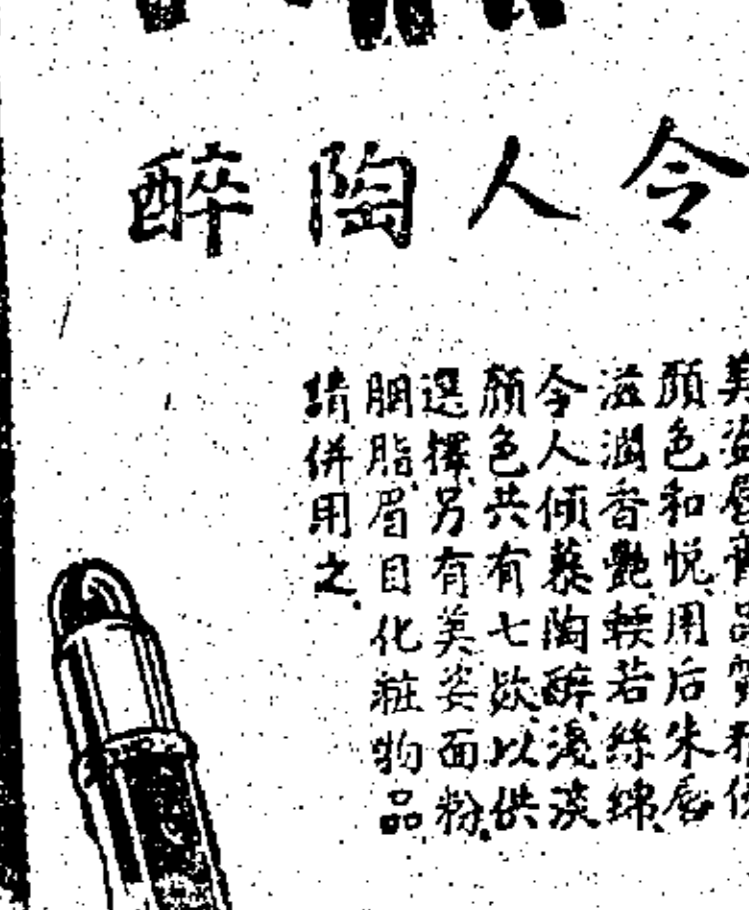 令人陶醉
美姿唇膏品質
顏色和悅用后朱唇
滋潤香艷輭若絲綿
令人傾慕陶醉淺淡
顏色共有七款以供
選擇另有美姿面粉
胭脂眉目化粧物品
請併用之